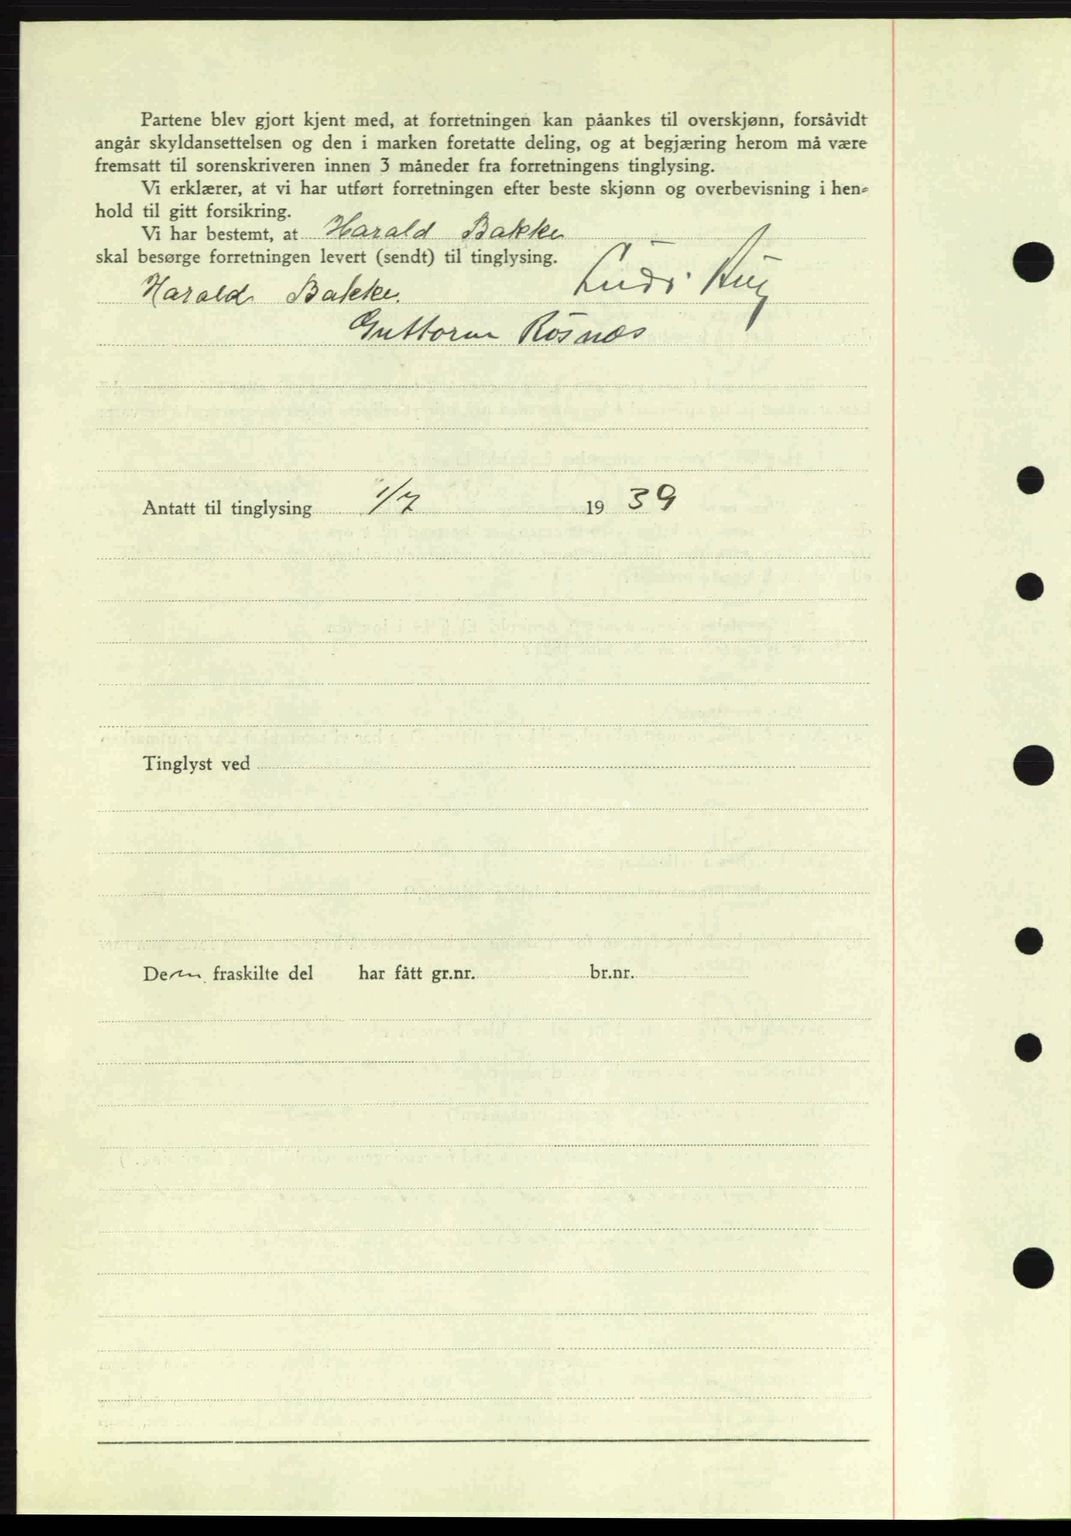 Partene blev gjort kjent med, at forretningen kan påankes til overskjønn, forsåvidt
angår skyldansettelsen og den i marken foretatte deling, og at begjæring herom må være
fremsatt til sorenskriveren innen 3 måneder fra forretningens tinglysing.
Vi erklærer, at vi har utført forretningen efter beste skjønn og overbevisning i hen-
hold til gitt forsikring.
Vi har bestemt, at Harald Bakke
skal besørge forretningen levert (sendt) til tinglysing.
Harald Bakke.
Guttorm Rosnæs
Antatt til tinglysing 1/7 19 39
Tinglyst ved
Den fraskilte del har fått gr.nr. br.nr.